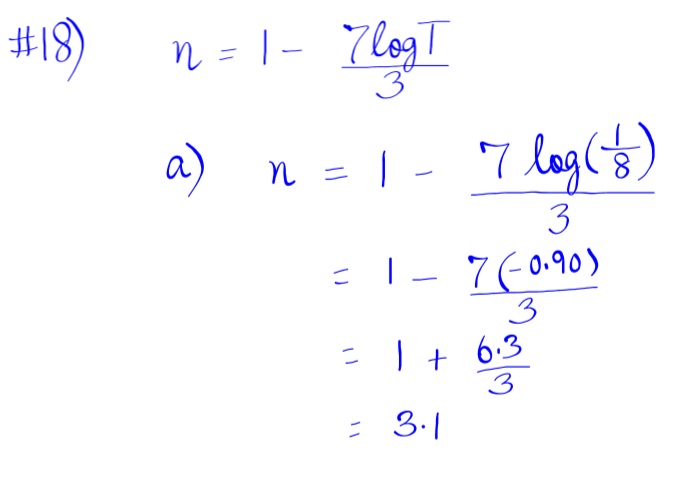 #18) n = 1 - 7logT/3
a) n = 1 - 7 log(1/8)/3
= 1 - 7(-0.90)/3
= 1 + 6.3/3
= 3.1